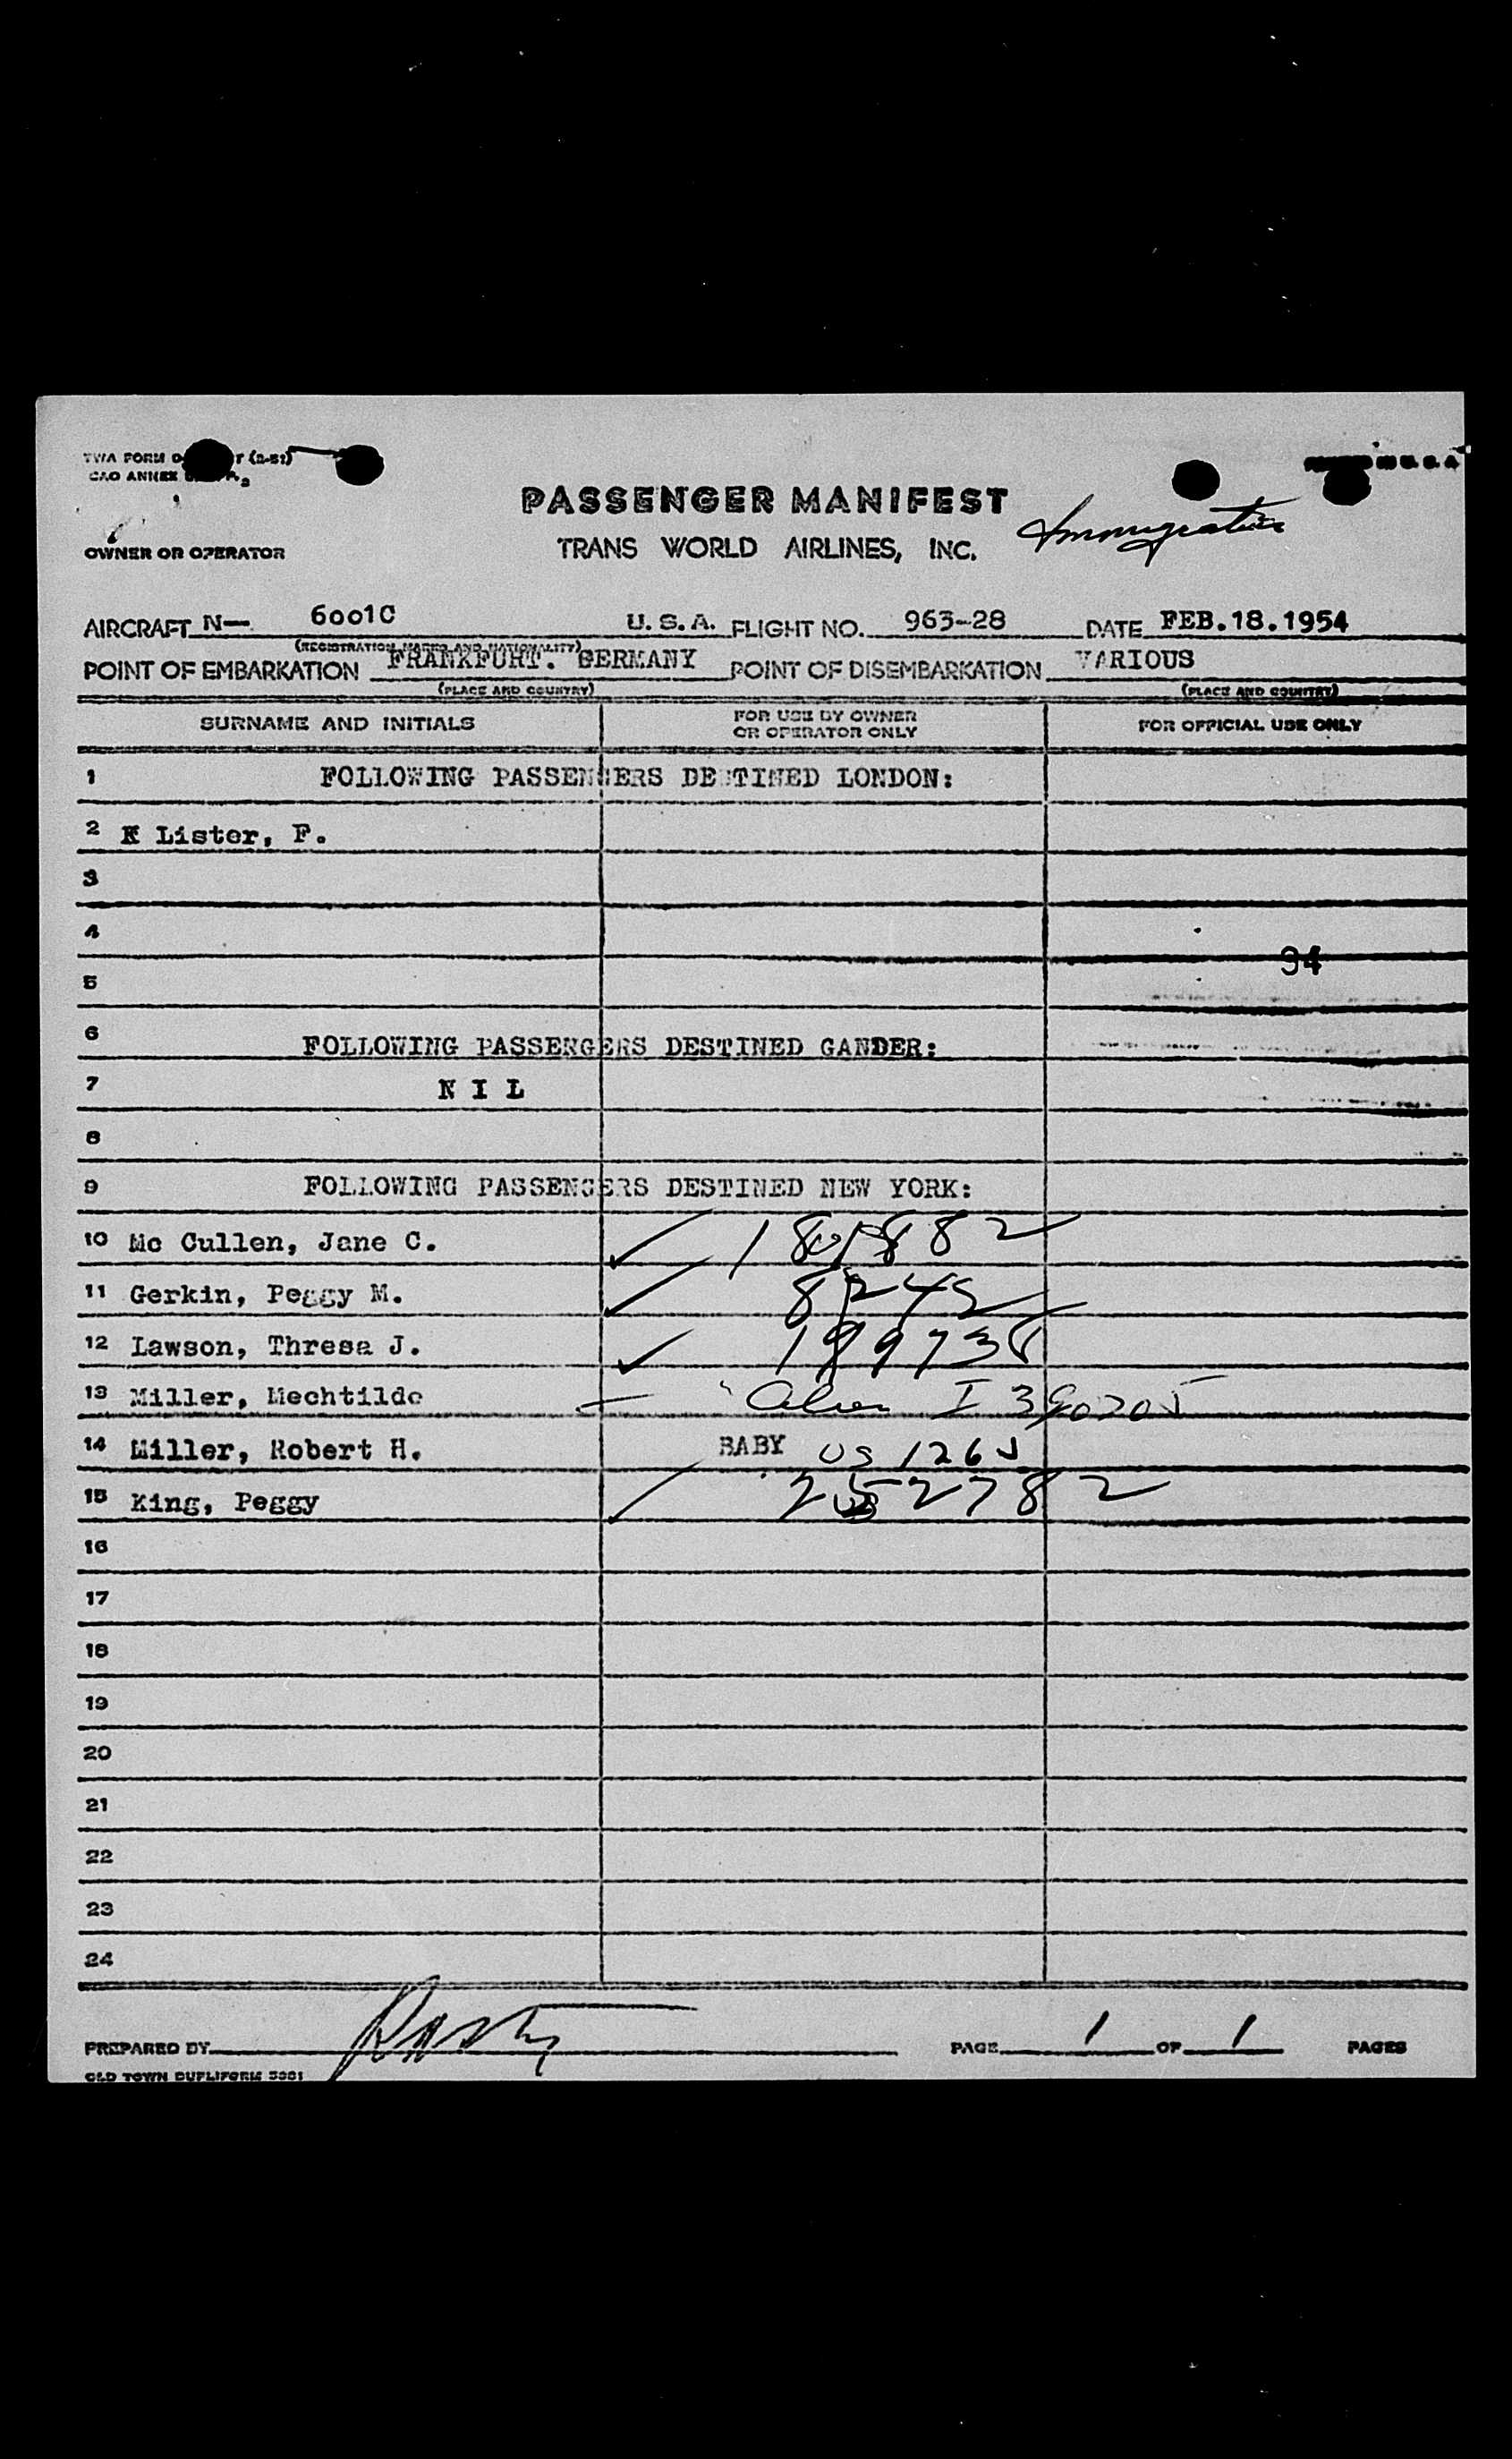 TWA FORM
CAO ANNEX
PASSENGER MANIFEST
Immigration
OWNER OR OPERATOR
TRANS WORLD AIRLINES, INC.
AIRCRAFT N— 6001C U. S. A. FLIGHT NO. 963-28 DATE FEB.18.1954
(REGISTRATION MARKS AND NATIONALITY)
POINT OF EMBARKATION FRANKFURT. GERMANY POINT OF DISEMBARKATION VARIOUS
(PLACE AND COUNTRY) (PLACE AND COUNTRY)
SURNAME AND INITIALS FOR USE BY OWNER OR OPERATOR ONLY FOR OFFICIAL USE ONLY
1 FOLLOWING PASSENGERS DESTINED LONDON:
2 Lister, F.
3
4
94
5
6 FOLLOWING PASSENGERS DESTINED GANDER:
7 N I L
8
9 FOLLOWING PASSENGERS DESTINED NEW YORK:
10 Mc Cullen, Jane C.
11 Gerkin, Peggy M.
12 Lawson, Thresa J.
13 Miller, Mechtilde Alien
14 Miller, Robert H. BABY US 1265
15 King, Peggy
16
17
18
19
20
21
22
23
24
PREPARED BY PAGE 1 OF 1 PAGES
OLD TOWN DUPLIFORM